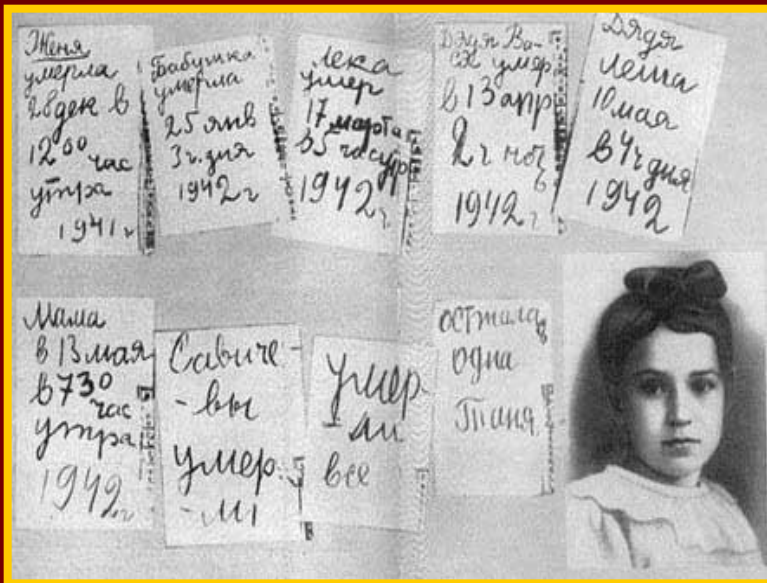 Женя
умерла
28 дек в
12 00 час
утра
1941 г
Бабушка
умерла
25 янв
3 ч. дня
1942 г
Лека
умер
17 марта
в 5 час утр
1942 г
Дядя Ва-
ся умер
в 13 апр
2 ч ноч
1942 г
Дядя
Леша
10 мая
в 4 ч дня
1942
Мама
в 13 мая
в 7 30
час
утра
1942 г
Савиче-
-вы
умер
-ли
умер
-ли
все
одна
Таня